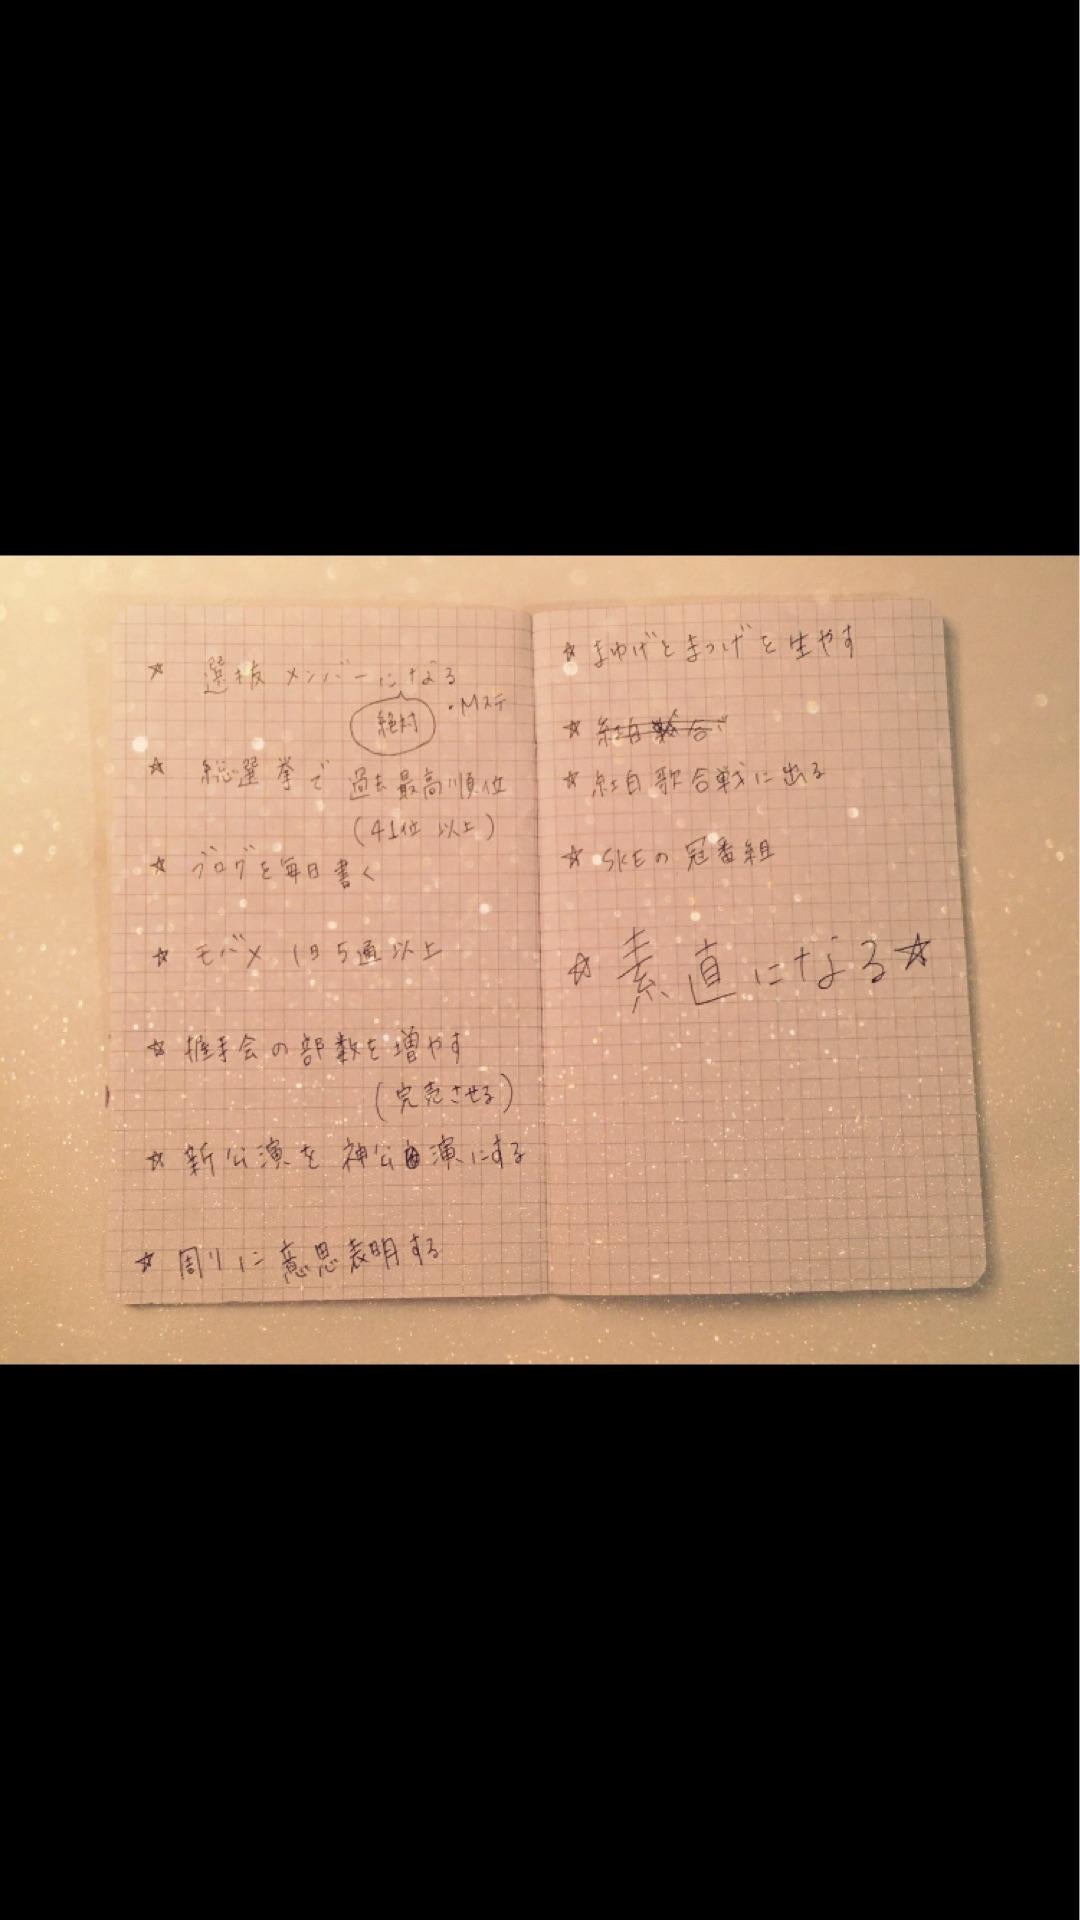 ☆ 選抜メンバーになる
絶対
・Mステ
☆ 総選挙で過去最高順位
(41位以上)
☆ ブログを毎日書く
☆ モバメ 1日5通以上
☆ 握手会の部数を増やす
(完売させる)
☆ 新公演を神公演にする
☆ 周りに意思表明する
☆ まゆげとまつげを生やす
☆ 紅白
☆ 紅白歌合戦に出る
☆ SKEの冠番組
☆ 素直になる☆